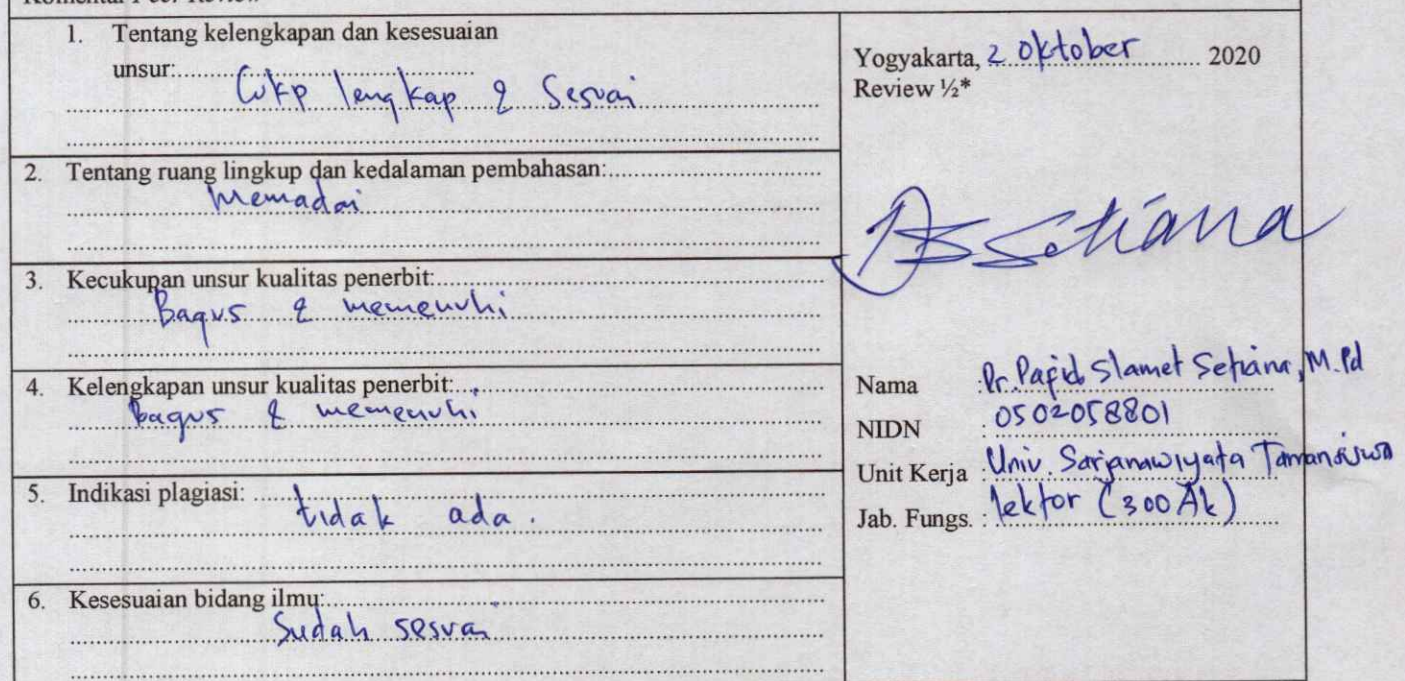 Komentar Peer Review
1. Tentang kelengkapan dan kesesuaian
unsur:
Cukp lengkap & Sesuai
2. Tentang ruang lingkup dan kedalaman pembahasan:
Memadai
3. Kecukupan unsur kualitas penerbit:
Bagus & memenuhi
4. Kelengkapan unsur kualitas penerbit:
bagus & memenuhi
5. Indikasi plagiasi:
tidak ada.
6. Kesesuaian bidang ilmu:
Sudah sesuai
Yogyakarta, 2 oktober 2020
Review ½*
DSSetiana
Nama : Dr. Dafid Slamet Setiana, M.Pd
NIDN : 0502058801
Unit Kerja : Univ. Sarjanawiyata Tamansiswa
Jab. Fungs. : lektor (300 Ak)